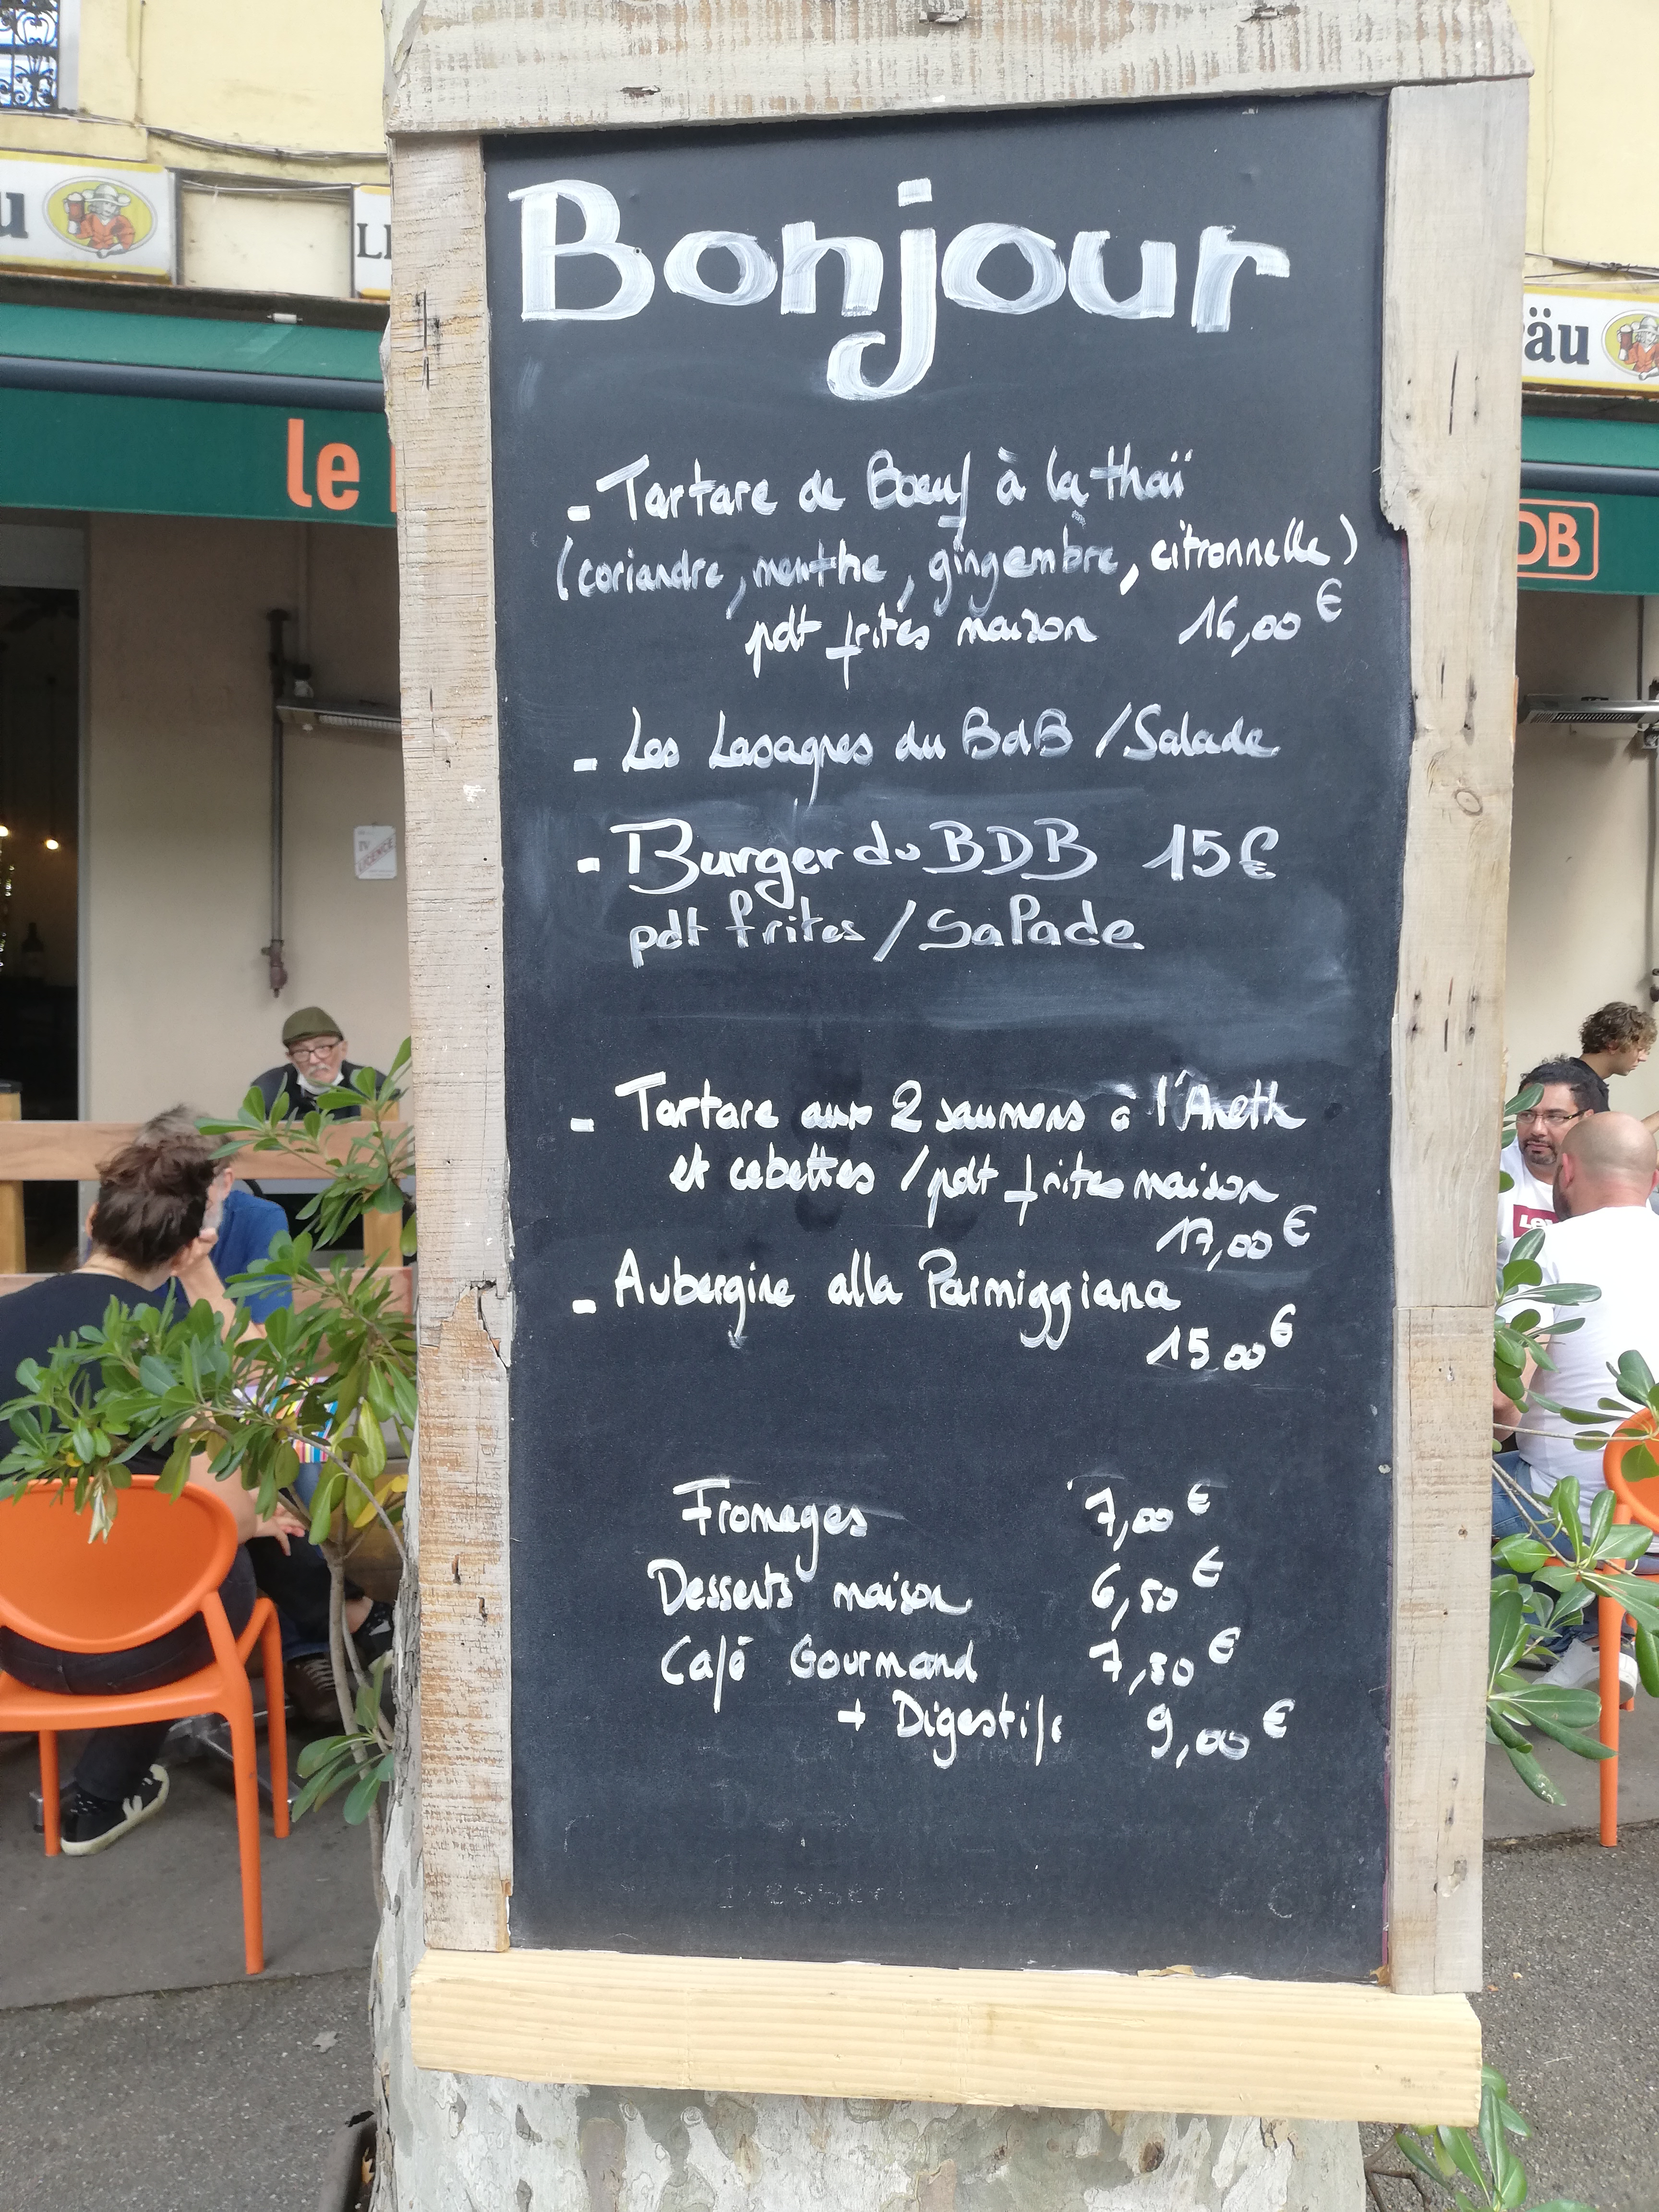 Bonjour
- Tartare de Boeuf à la thaï
(coriandre, menthe, gingembre, citronnelle)
pdt frites maison 16,00 €
- Les Lasagnes du BdB / Salade
- Burger du BDB 15€
pdt frites / Salade
- Tartare aux 2 saumons à l'Aneth
et cebettes / pdt frites maison
17,00 €
- Aubergine alla Parmiggiana
15,00 €
Fromages 7,00 €
Desserts maison 6,50 €
Café Gourmand 7,50 €
+ Digestifs 9,00 €
le
DB
äu
TV
LICENCE